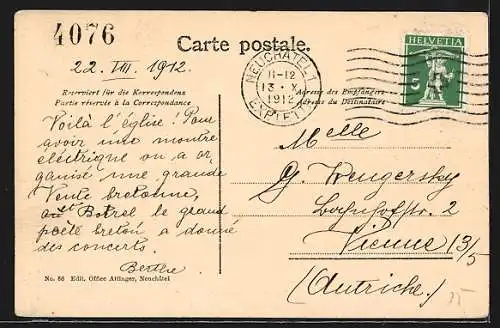 4076
Carte postale.
HELVETIA
5
NEUCHATEL 1
11-12
13 · X
1912
22. VIII. 1912.
Reserviert für die Korrespondenz
Partie réservée à la Correspondance
Adresse des Empfängers
Adresse du Destinataire
Voilà l'église! Pour
avoir une montre
électrique on a or
ganisé une grande
Vente bretonne,
où Botrel le grand
poète breton a donné
des concerts.
Berthe
Melle
G. Wengersky
Bahnhofstr. 2
Vienne 13/5
(Autriche)
15
No. 86 Edit. Office Attinger, Neuchâtel